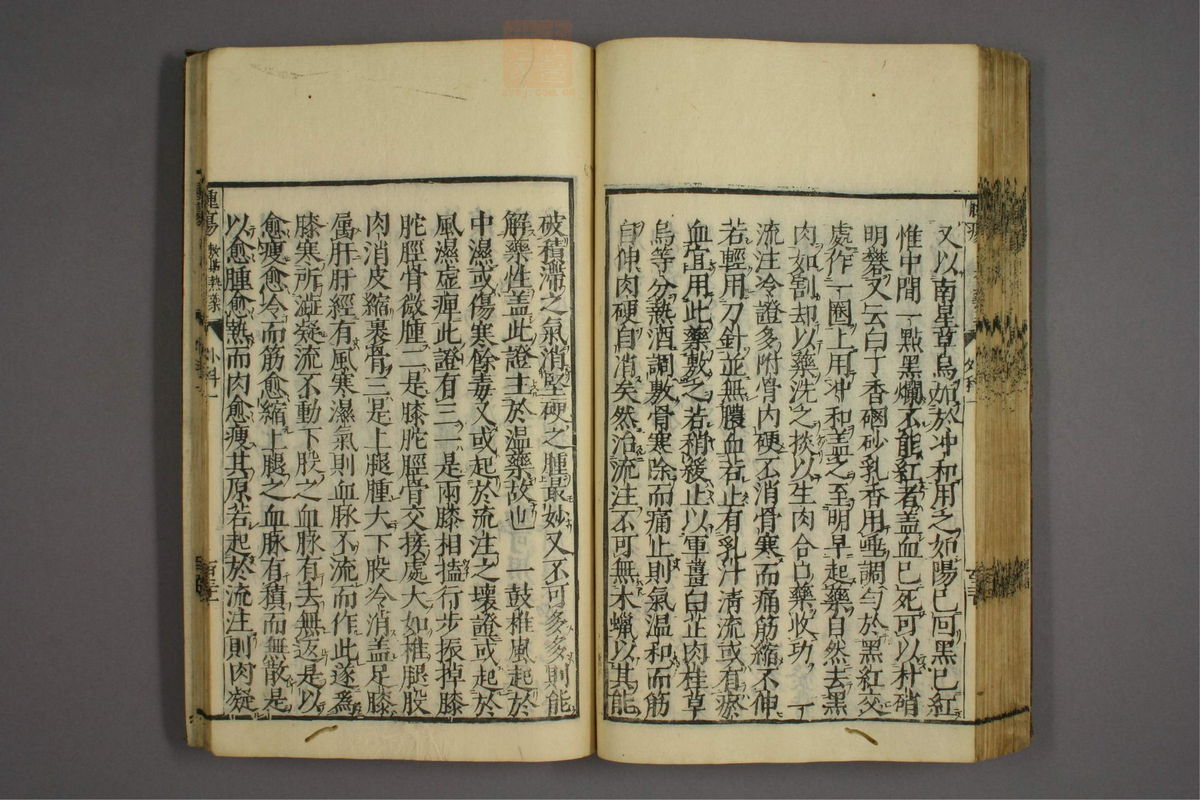 又以南星草烏加於冲和用之如陽已回黑已紅
惟中間一點黑爛不能紅者蓋血已死可以朴硝
明礬又云白丁香硇砂乳香用唾調勻於黑紅交
處作一圈上用冲和蓋之至明早起藥自然去黑
肉如割却以藥洗之摻以生肉合口藥收功　一
流注冷證多附骨内硬不消骨寒而痛筋縮不伸
若輕用刀針並無膿血若止有乳汁清流或有瘀
血宜用此藥敷之若稍緩止以軍薑白芷肉桂草
烏等分熱酒調敷骨寒除而痛止則氣温和而筋
自伸肉硬自消矣然治流注不可無木蠟以其能
破積滯之氣消堅硬之腫最妙又不可多多則能
解藥性蓋此證主於温藥故也　一鼓椎風起於
中濕或傷寒餘毒又或起於流注之壞證或起於
風濕虚痺此證有三一是兩膝相搕行步振掉膝
腫脛骨微腫二是膝腫脛骨交接處大如椎腿股
肉消皮縮裹骨三是上腿腫大下股冷消蓋足膝
属肝肝經有風寒濕氣則血脉不流而作此遂爲
膝寒所澁凝流不動下股之血脉有去無返是以
愈瘦愈冷而筋愈縮上腿之血脉有積而無散是
以愈腫愈熱而肉愈瘦其原若起於流注則肉凝